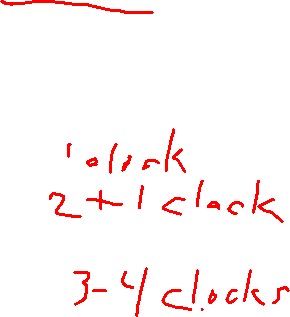 1 clock
2 + 1 clock
3-4 clocks